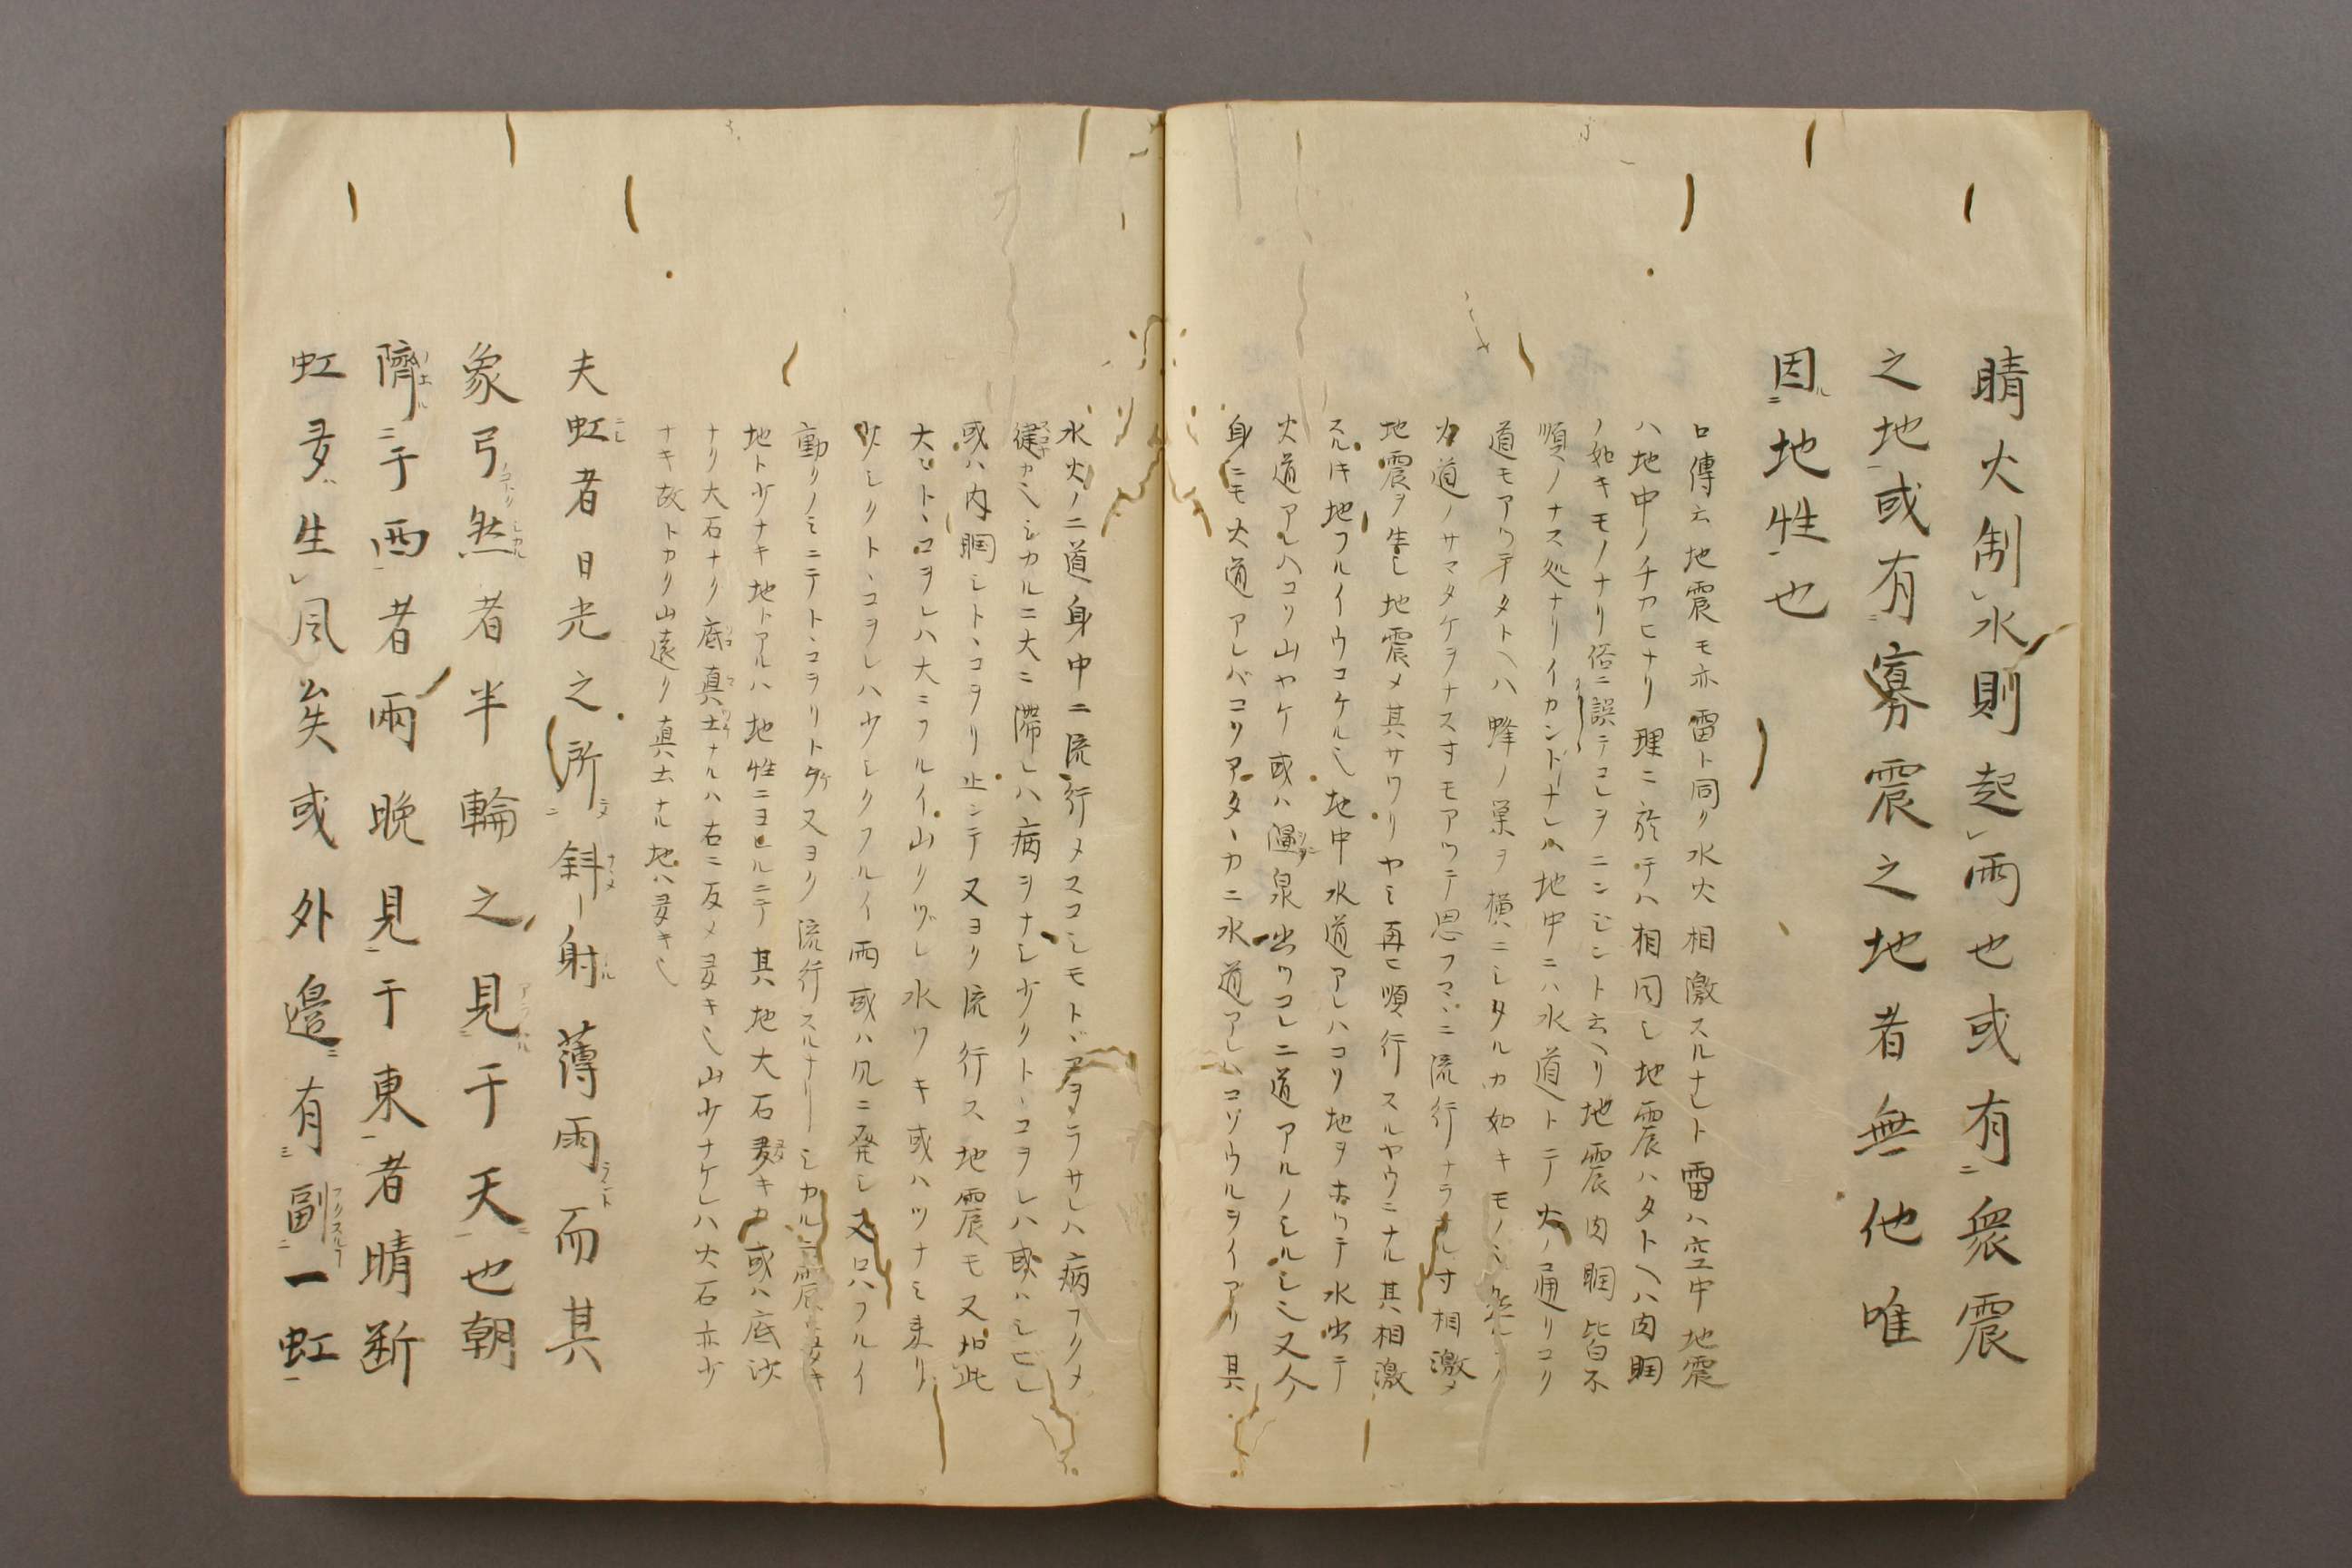 晴火制水則起雨也或有衆震
之地或有寡震之地者無他唯
因地性也
口傳云地震モ亦雷ト同ク水火相激スルナレト雷ハ空中地震
ハ地中ノチカヒナリ理ニ於テハ相同シ地震ハタトヘハ肉瞤
ノ如キモノナリ俗ニ誤テコレヲニンシント云ヘリ地震肉瞤皆不
順ノナス処ナリイカントナレハ地中ニハ水道トテ火ノ通リコリ
道モアツテタトヘハ蜂ノ巣ヲ横ニシタルカ如キモノ
火道ノサマタケヲナスモアツテ思フマヽニ流行ナラサル寸相激メ
地震ヲ生シ地震メ其サワリヤミ再ヒ順行スルヤウニナル其相激
スル寸地フルイウコケル也地中水道アレハコソ地ヲホツテ水出テ
火道アレハコソ山ヤケ或ハ温泉出ツコレ二道アルノシルシ也又人
身ニモ火道アレバコソアタヽカニ水道アレハコソウルヲイアリ其
水火ノ二道身中ニ流行メスコシモトヾコヲラサレハ病フクメ
健カニシカルニ大ニ滞レハ病ヲナシ少クトヽコヲレハ或ハシビレ
或ハ内瞤シトヽコヲリ止ンテ又ヨク流行ス地震モ又如此
大ヒトヽコヲレハ大ニフルイ山クヅレ水ワキ或ハツナミ来リ
少シクトヽコヲレハ少シクフルイ雨或ハ風ニ発シ又只ハフルイ
動クノミニテトヽコヲリトケ又ヨク流行スルナリシカルニ震ノ多キ
地ト少ナキ地トアルハ地性ニヨレルニテ其地大石多キカ或ハ底沙
ナリ大石ナク底真土ナルハ右ニ反メ多キ也山少ナケレハ大石亦少
ナキ故トカク山遠ク真土ナル地ハ多キ也
夫虹者日光之所斜射薄雨而其
象弓然者半輪之見于天也朝
隮于西者雨晩見于東者晴断
虹多生風矣或外邉有副一虹